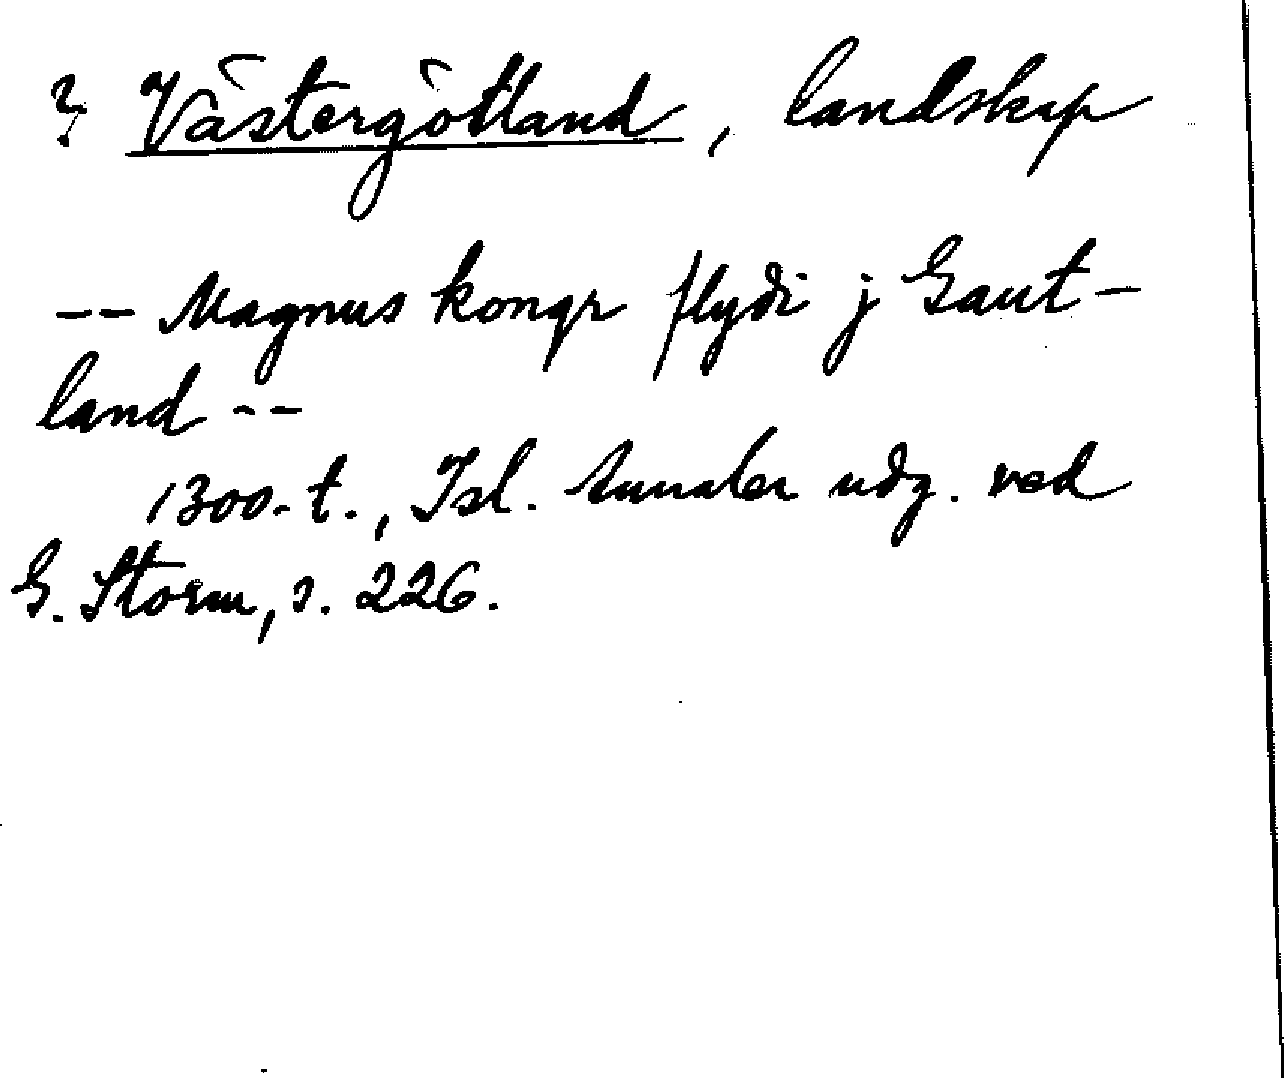 ? Västergötland, landskap
-- Magnus kongr flyði j Gaut-
land --
1300-t., Isl. Annaler udg. ved
G. Storm, s. 226.